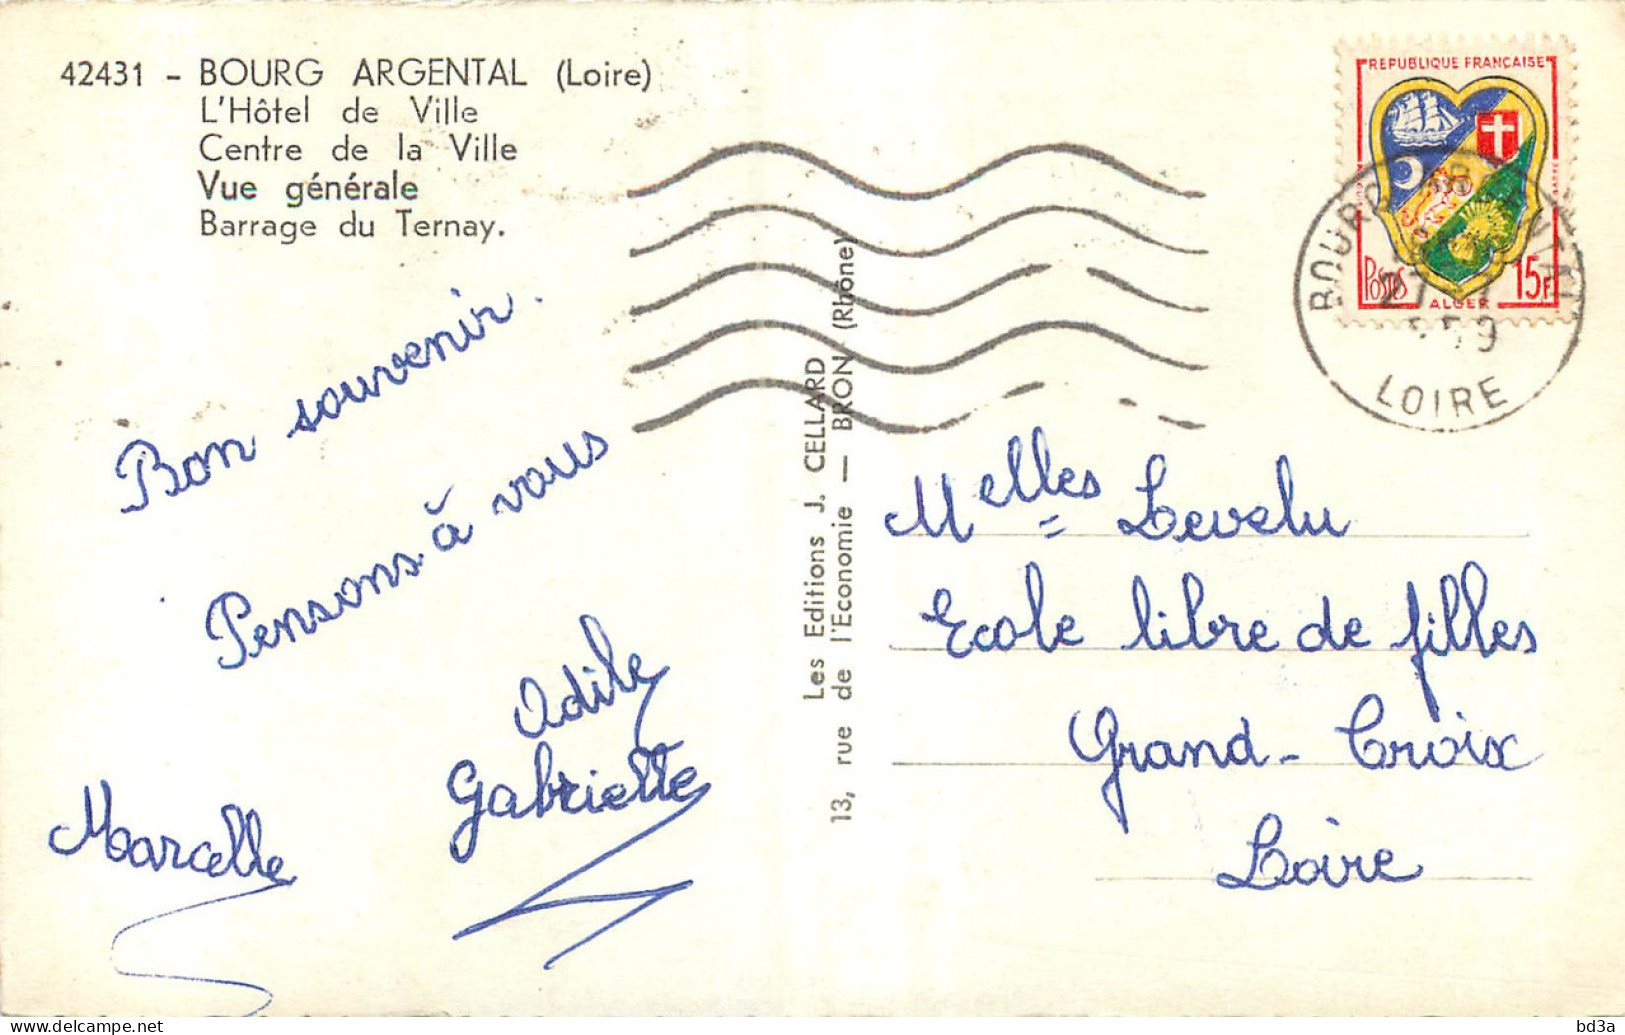 42431 - BOURG ARGENTAL (Loire)
L'Hôtel de Ville
Centre de la Ville
Vue générale
Barrage du Ternay.
Bon souvenir.
Pensons à vous
Odile
Gabrielle
Marcelle
Les Editions J. CELLARD
13, rue de l'Economie — BRON (Rhône)
REPUBLIQUE FRANÇAISE
POSTES
ALGER
15F
BOURG ARGENTAL
LOIRE
Melles Levelu
Ecole libre de filles
Grand-Croix
Loire
delcampe.net
bd3a